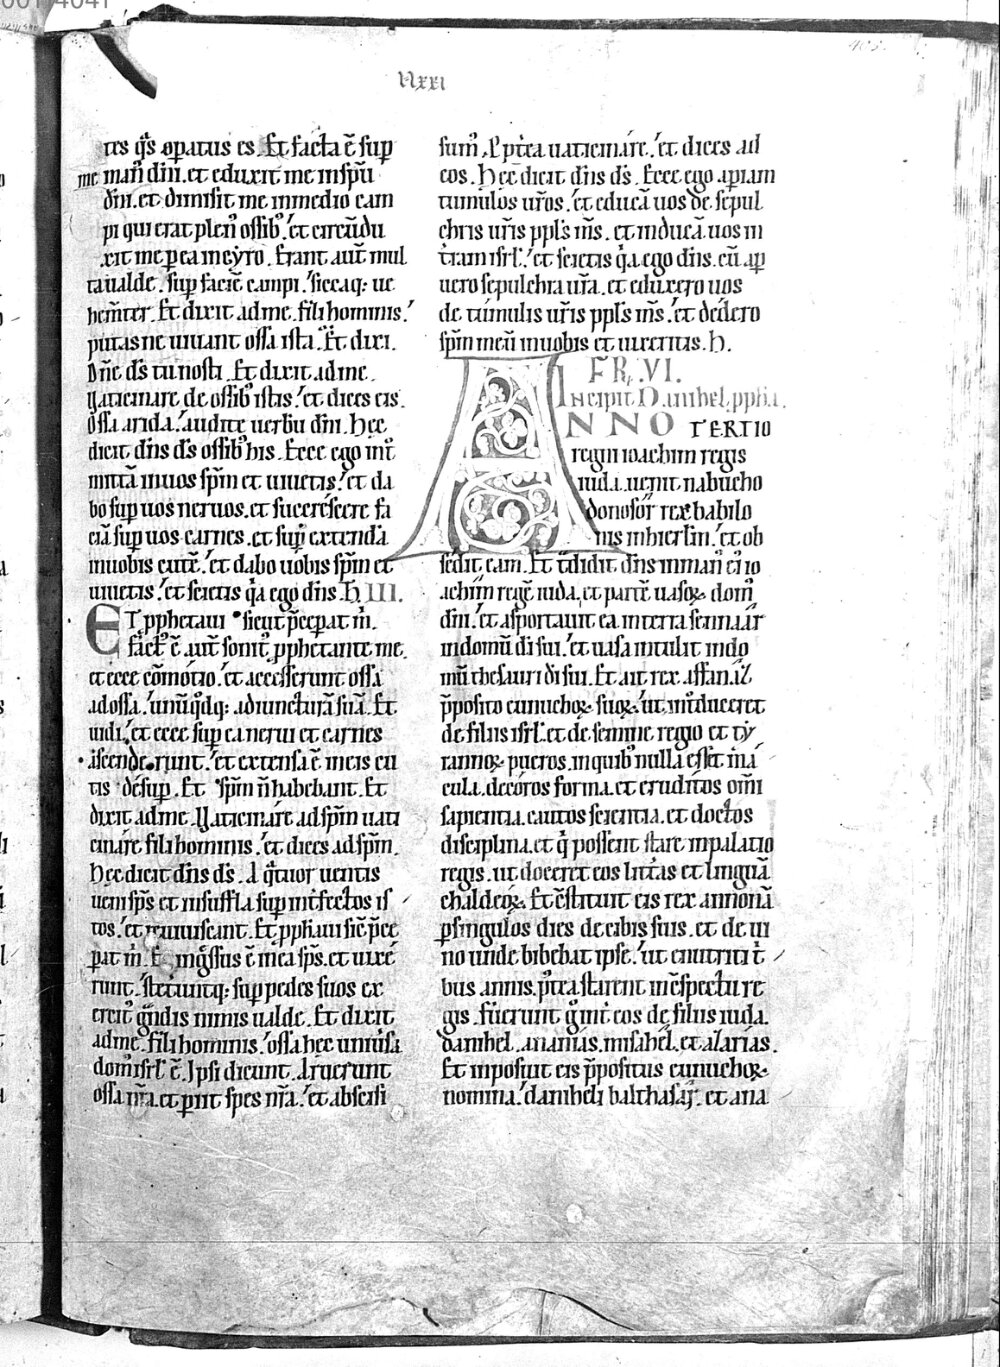 ƞxxı
tes q̄s oꝑatus es. Et facta ē sup
me man̄ dn̄i. et eduxit me inspū
dn̄i. et dimisit me inmedio cam
pi qui erat plen⁹ ossib⁹. et circūdu
xit me ꝑ ea ingẏro. Erant aut̄ mul
ta ualde. sup faciē campi. siccaq; ue
hem̄ter. Et dixit ad me. fili hominis.
putas ne uiuant ossa ista. Et dixi.
Dn̄e ds̄ tu nosti. Et dixit ad me.
Uaticinare de ossib⁹ istis. et dices eis.
Ossa arida. audite uerbū dn̄i. Hęc
dicit dn̄s ds̄ ossib⁹ his. Ecce ego int̄
mittā inuos sp̄m et uiuetis. et da
bo sup uos neruos. et succrescere fa
ciā sup uos carnes. et sup̄ extendā
inuobis cutē. et dabo uobis sp̄m et
uiuetis. et scietis q̄a ego dn̄s. H. III.
ET ꝓphetaui sicut p̄cepat m̄.
fact⁹ ē aut̄ sonit⁹ ꝓphetante me.
et ecce cōmotio. et accesserunt ossa
ad ossa. unūq̄dq; ad iuncturā suā. Et
uidi. et ecce sup ea nerui et carnes
ascenderunt. et extensa ē in eis cu
tis desup. Et sp̄m n̄ habebant. Et
dixit ad me. Uaticinare ad sp̄m uati
cinare fili hominis. et dices ad sp̄m.
Hęc dicit dn̄s ds̄. A q̄tuor uentis
ueni sp̄s et insuffla sup int̄fectos is
tos. et reuiuiscant. Et ꝓph̄aui sic̄ p̄ce
pat m̄. Et ingssus ē in ea sp̄s. et uixe
runt. steteruntq; sup pedes suos ex
ercit⁹ g̃ndis nimis ualde. Et dixit
ad me. fili hominis. ossa hęc uniūsa
dom⁹ isrl̄ ē. Ipsi dicunt. Aruerunt
ossa nr̄a. et ꝑiit spes nr̄a. et abscisi
sum⁹. Ppt̄ea uaticinare. et dices ad
eos. Hęc dicit dn̄s ds̄. Ecce ego aꝑiam
tumulos ur̄os. et educā uos de sepul
chris ur̄is ppl̄s m̄s. et inducā uos in
tr̄am isrl̄. et scietis q̄a ego dn̄s. cū ap
uero sepulchra ur̄a. et eduxero uos
de tumulis ur̄is ppl̄s m̄s. et dedero
sp̄m meū inuobis et uixeritis. H.
FR̄. VI.
Incipit Danihel ppha.
ANNO TERTIO
regni ioachim regis
iuda. uenit nabucho
donosor rex babilo
nis in hierlm̄. et ob
sedit eam. Et tradidit dn̄s in man⁹ ei⁹ io
achim regē iuda. et partē uasoꝝ dom⁹
dn̄i. et asportauit ea interra sennaar
indomū di sui. et uasa intulit indo
mū thesauri di sui. Et ait rex asfanaz
p̄posito eunuchoꝝ suoꝝ. ut int̄duceret
de filiis isrl̄. et de semine regio et tẏ
rannoꝝ pueros. in quib⁹ nulla esset ma
cula. decoros forma. et eruditos om̄i
sapientia. cautos scientia. et doctos
disciplina. et q̄ possent stare inpalatio
regis. ut doceret eos litt̄as et linguā
chaldeoꝝ. Et c̄stituit eis rex annonā
ꝑ singulos dies de cibis suis. et de ui
no unde bibebat ipse. ut enutriti t̄
bus annis. p⁹tea starent in c̄spectu re
gis. Fuerunt g̊ int̄ eos de filiis iuda.
danihel. ananias. misahel. et azarias.
Et inposuit eis p̄positus eunuchoꝝ
nomina. daniheli balthasar. et ana